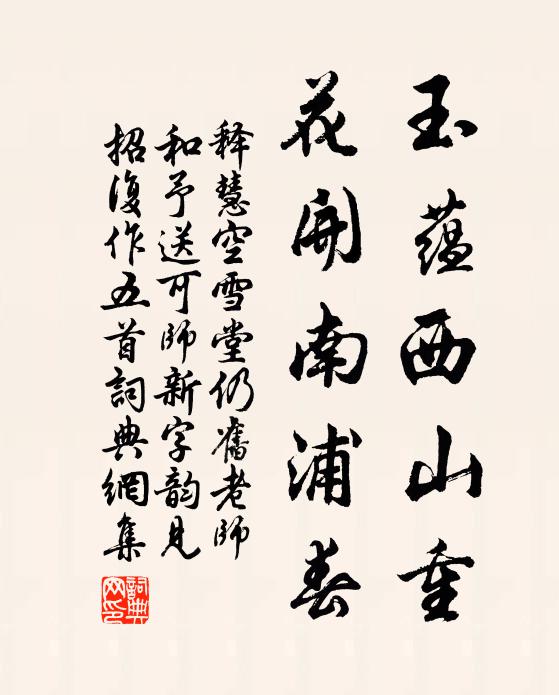 玉蕴西山重
花開南浦春
释慧空雪堂仍舊老師
和予送可師新字韵見
招復作五首詞典網集
詞典網印